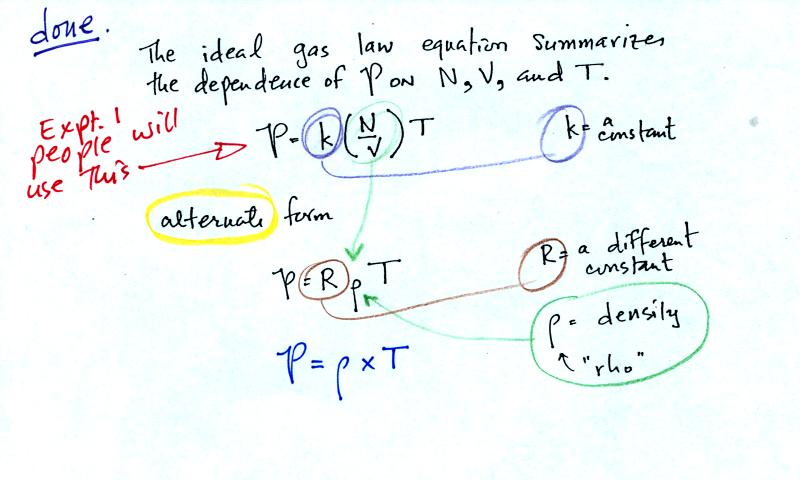 done.
The ideal gas law equation summarizes
the dependence of P on N, V, and T.
Expt. 1
people will
use this
P = k (N/V) T
k = a
constant
alternate form
P = R ρ T
R = a different
constant
ρ = density
↑ "rho"
P = ρ x T